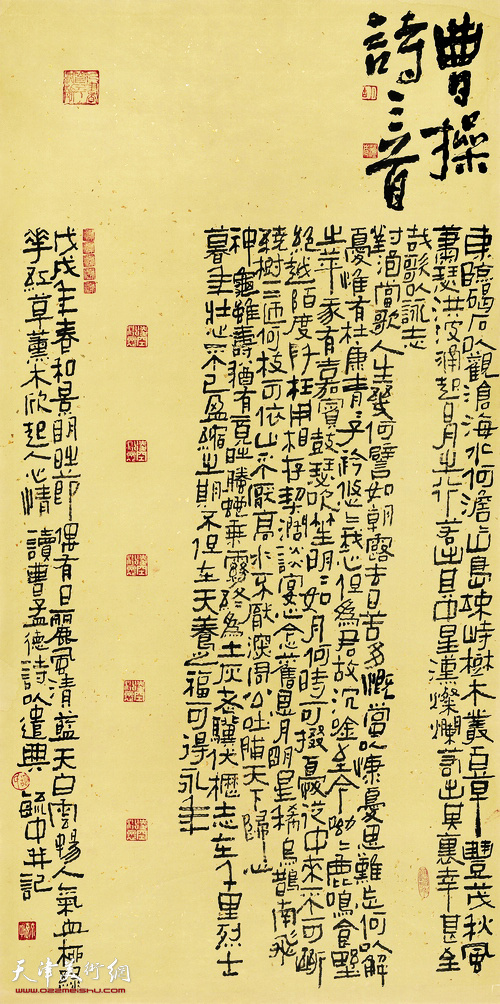 曹操
詩三首
東臨碣石以觀滄海水何澹山島竦峙樹木叢百草豐茂秋風
蕭瑟洪波涌起日月之行若出其中星漢燦爛若出其裏幸甚至
哉歌以詠志
對酒當歌人生幾何譬如朝露去日苦多慨當以慷憂思難忘何以解
憂惟有杜康青青子衿悠悠我心但為君故沉吟至今呦呦鹿鳴食野
之苹我有嘉賓鼓瑟吹笙明明如月何時可掇憂從中來不可斷
絕越陌度阡枉用相存契闊談宴心念舊恩月明星稀烏鵲南飛
繞樹三匝何枝可依山不厭高水不厭深周公吐脯天下歸心
神龜雖壽猶有竟時騰蛇乘霧終為土灰老驥伏櫪志在千里烈士
暮年壯心不已盈縮之期不但在天養怡之福可得永年
戊戌年春和景明時節偶有日麗風清藍天白雲暢人氣血極
華紅草薰木欣起人心情 讀曹孟德詩以遣興 毓中并記
天津美術網
www.022meishu.com